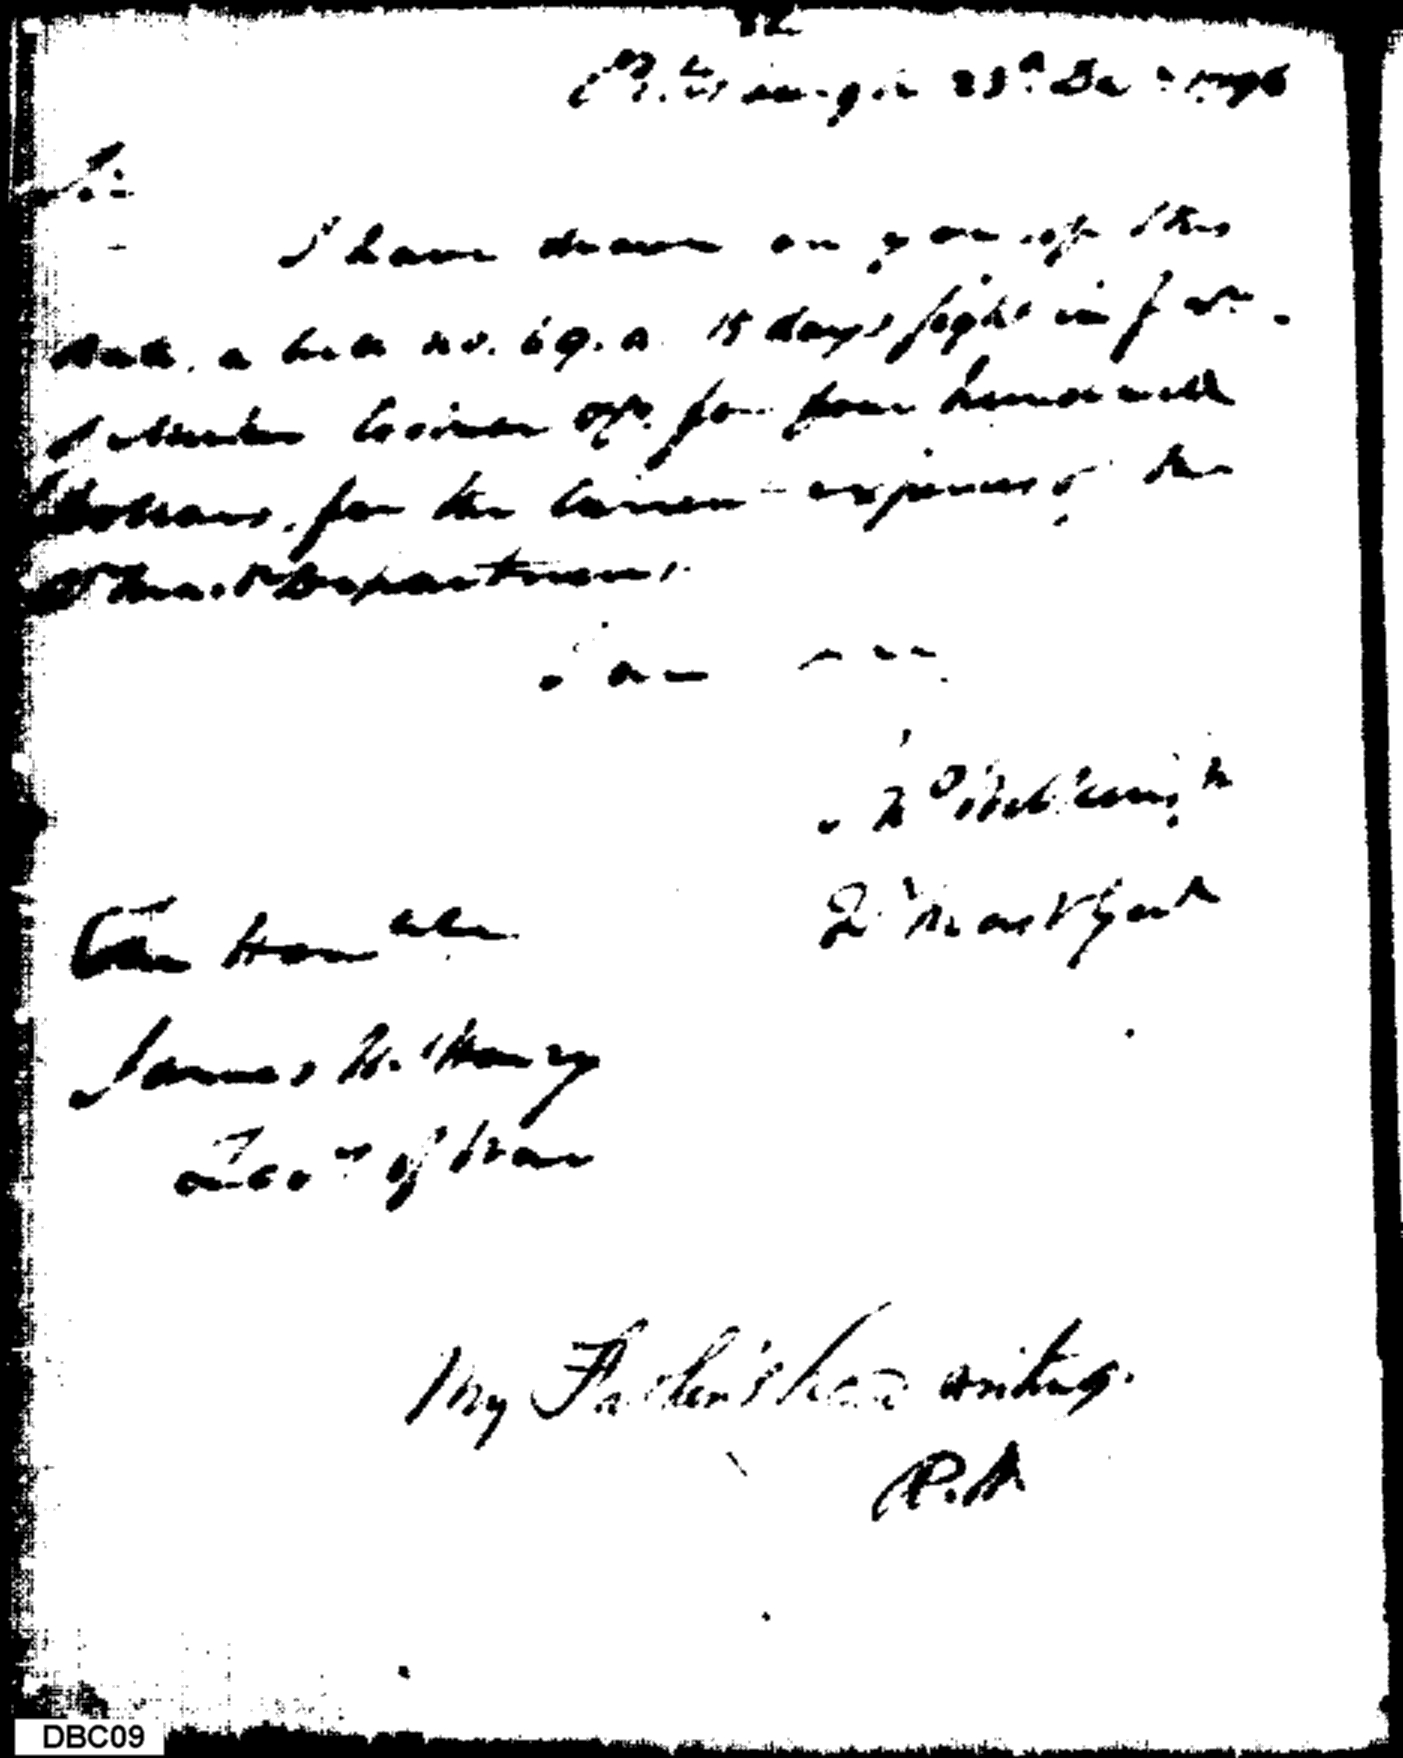 Pittsburgh 23d. Dec. 1796
Sir
I have drawn on you of this
date, a bill no. 69. a 15 days sight in favr.
for four hundred
Dollars, for the Current expences of the
Qr. Mast. Department.
I am
Jno Wilkins jr
Qr. Mast. Genl
The Honable
James McHenry
Secy of War
My Father's hand writing.
R.W
DBC09